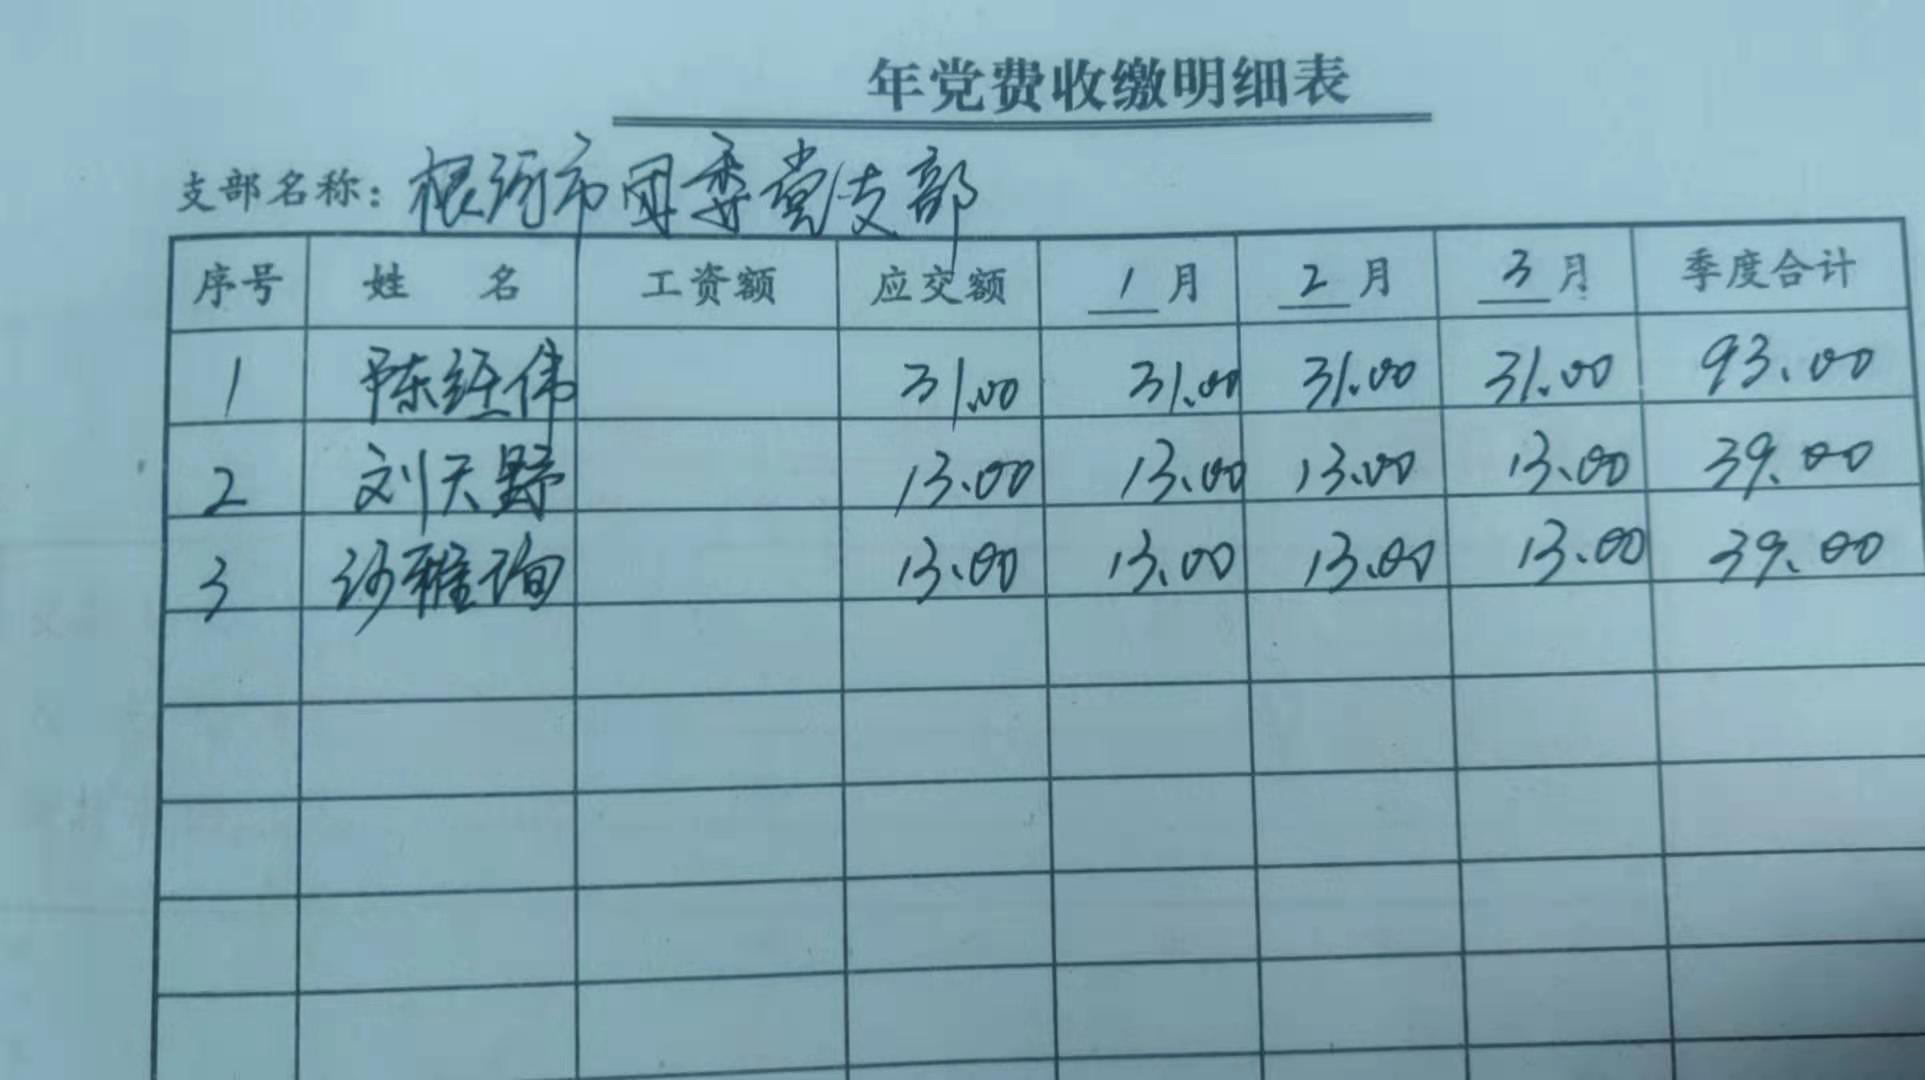 年党费收缴明细表
支部名称：根河市团委党支部
序号 姓 名 工资额 应交额 1月 2月 3月 季度合计
1 陈经伟 31.00 31.00 31.00 31.00 93.00
2 刘天野 13.00 13.00 13.00 13.00 39.00
3 沙雅询 13.00 13.00 13.00 13.00 39.00